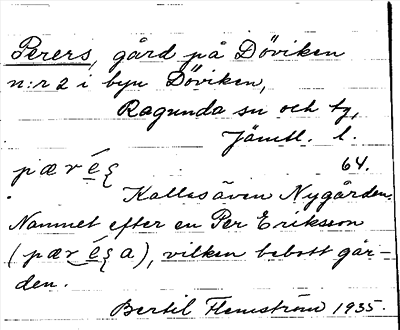 Perers, gård på Döviken
n:r 2 i byn Döviken,
Ragunda sn och tg,
Jämtl. l.
64.
Kallas även Nygården.
Namnet efter en Per Eriksson
vilken bebott går-
den.
Bertil Flemström 1935.